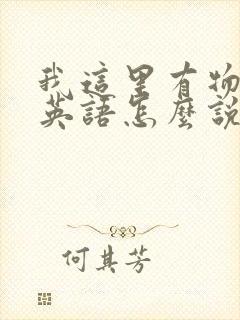 我這里有物
英語怎麼說
何其芳